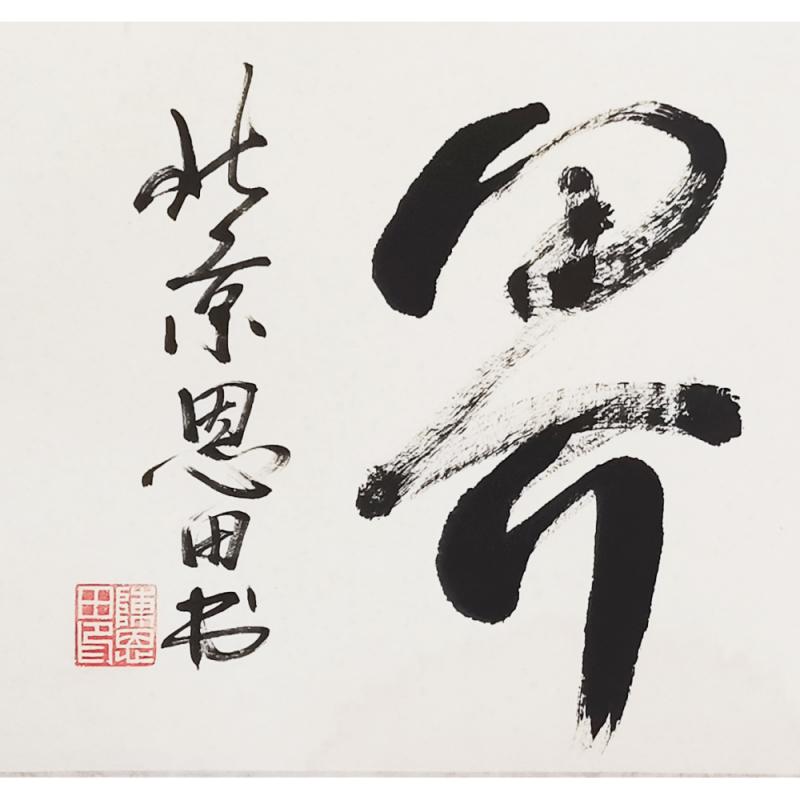 界
北京恩田书
陳恩
田印